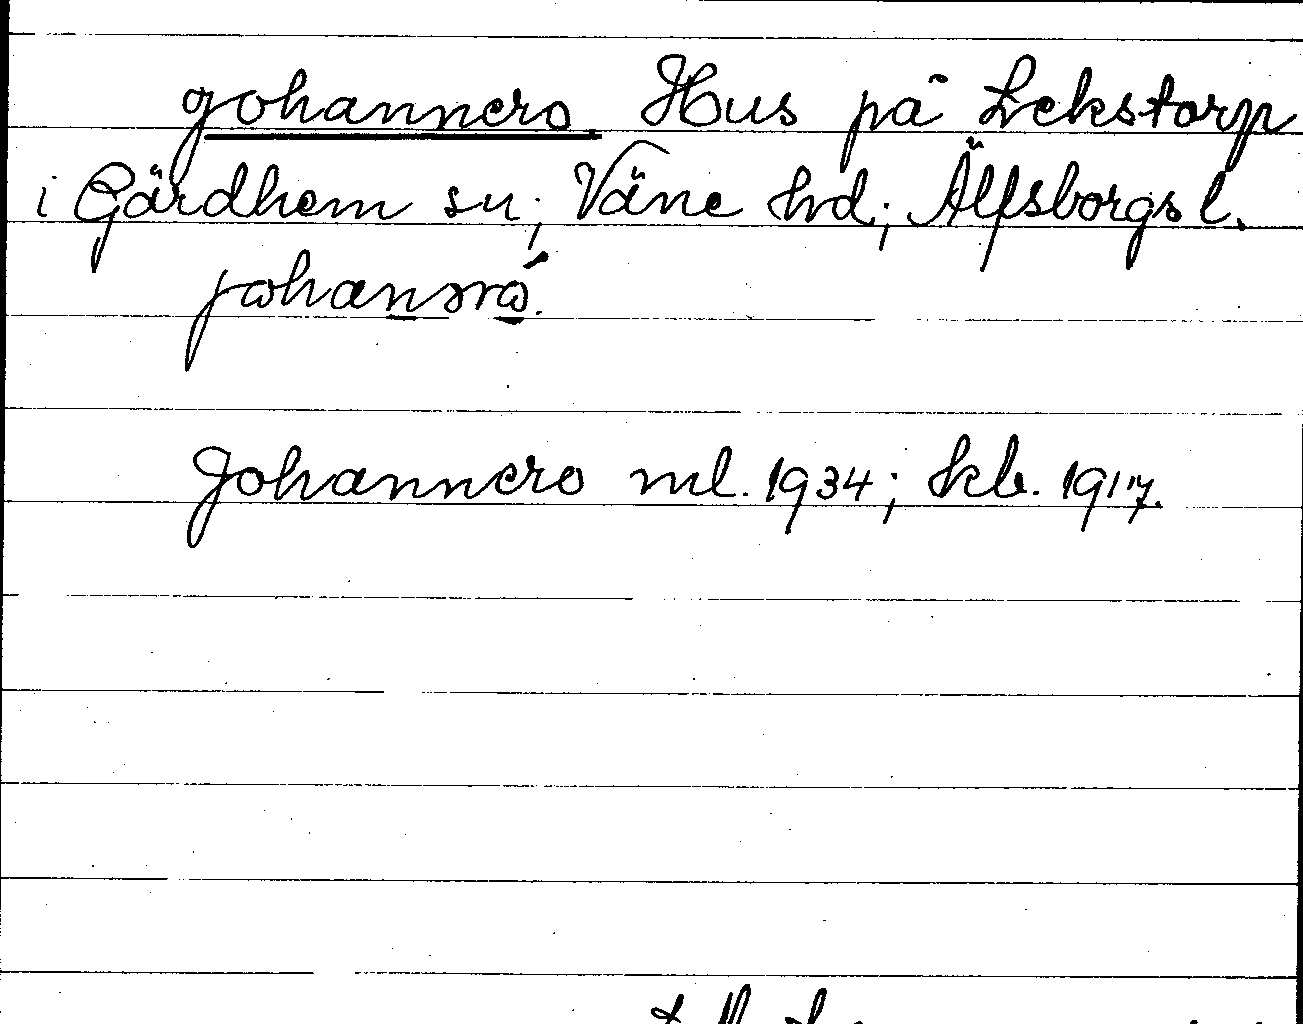 Johannero Hus på Lekstorp
i Gärdhem sn; Väne hd; Älfsborgs l.
johanəró.
Johannero ml. 1934; kb. 1917.